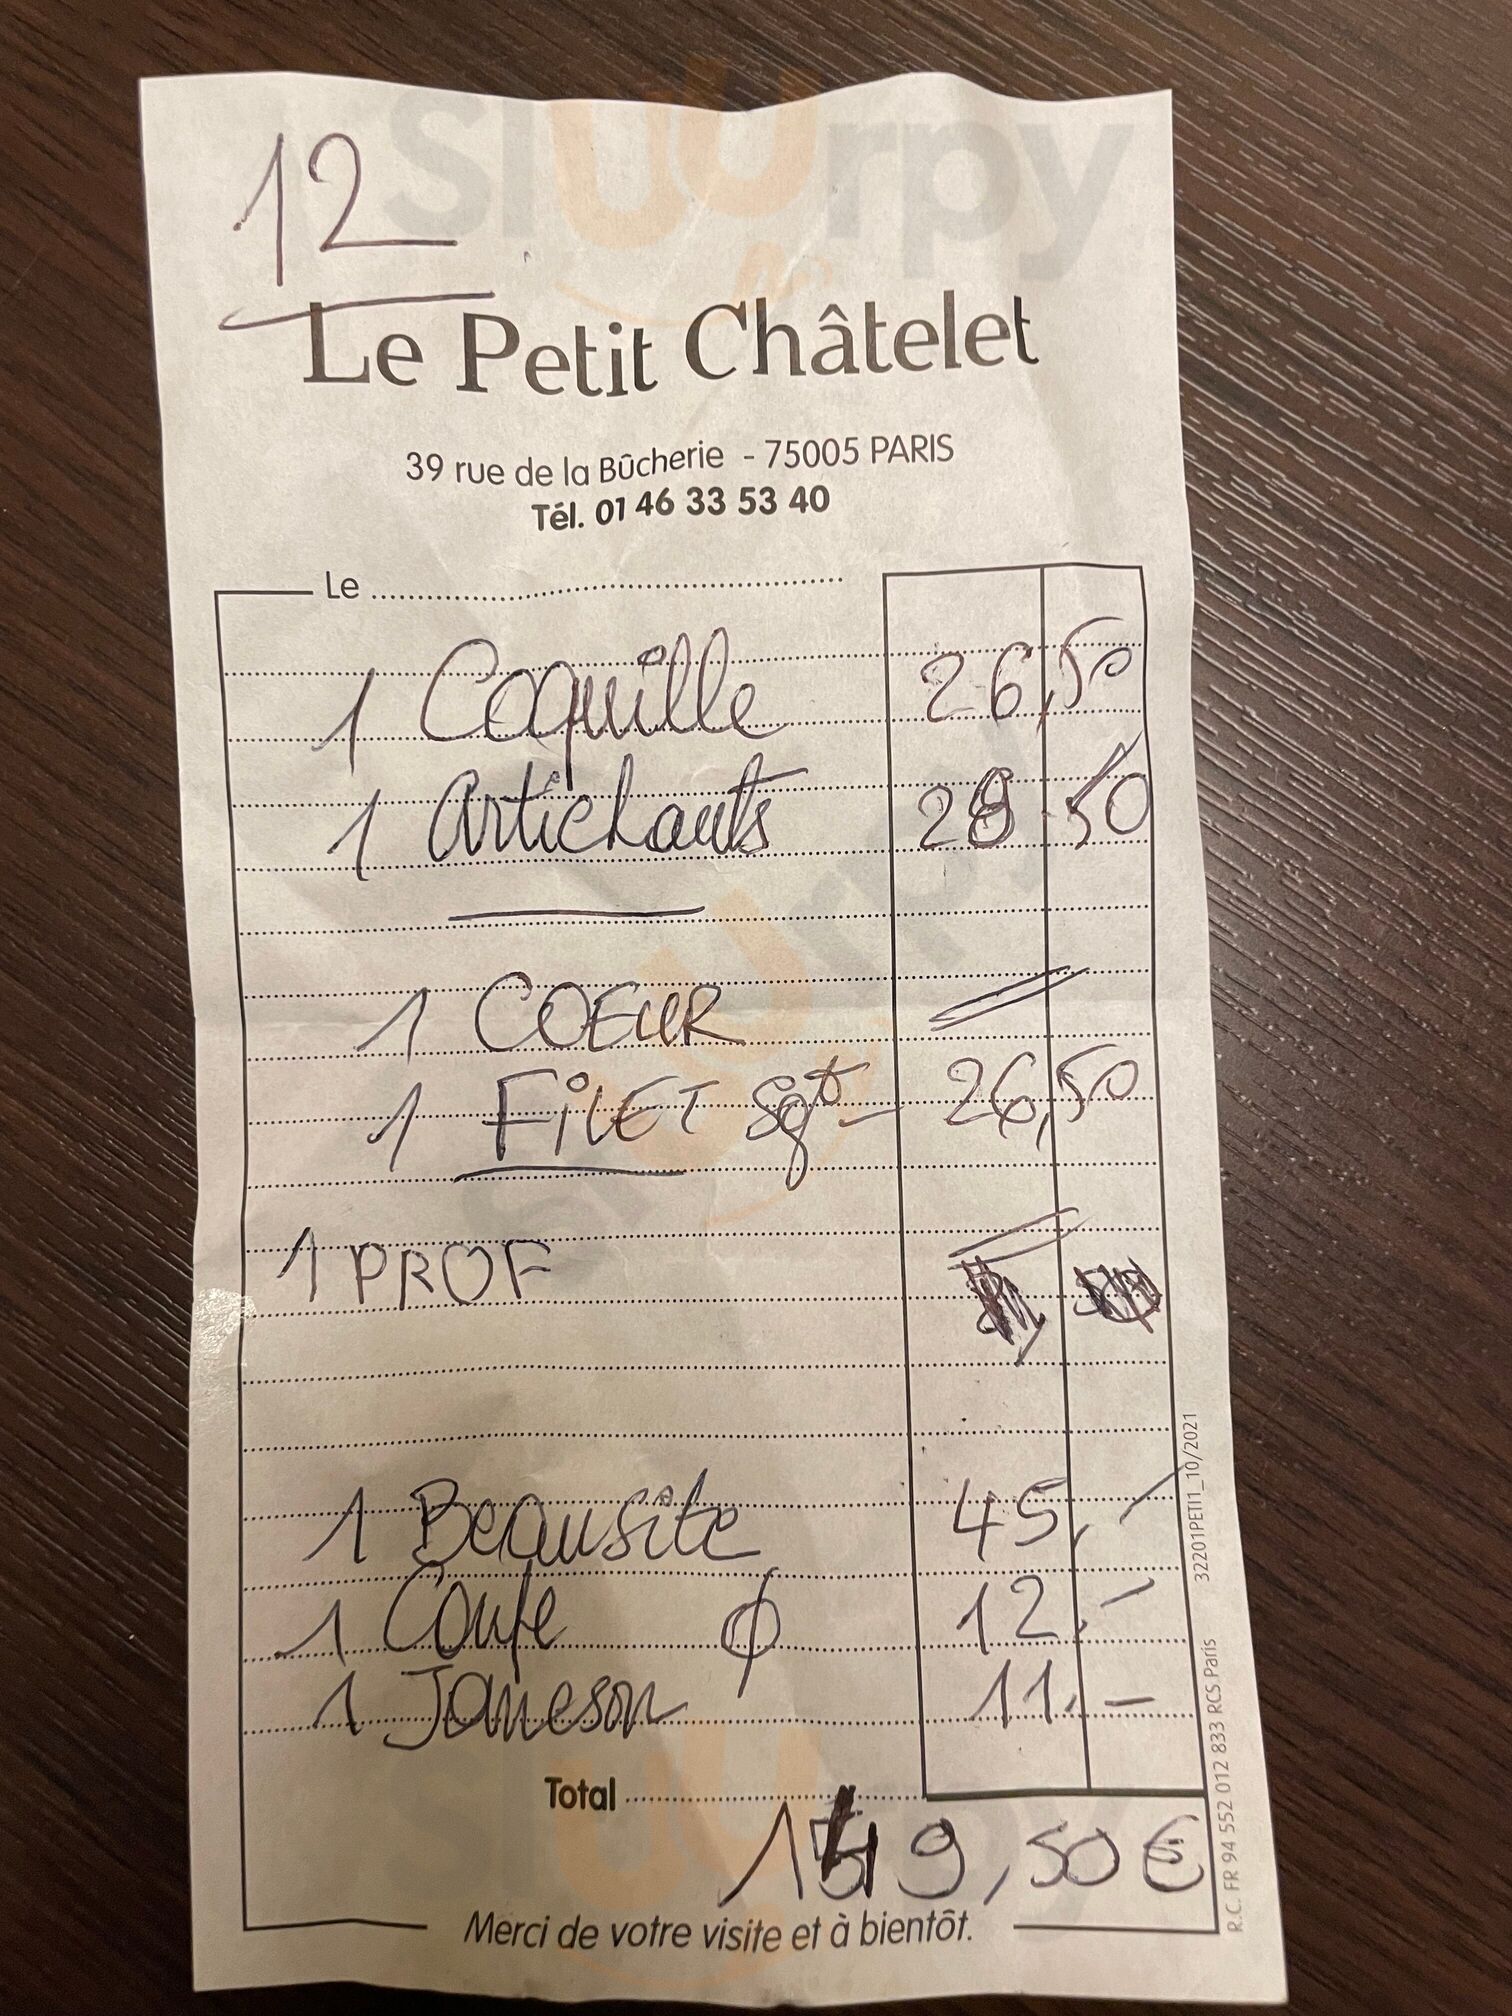 12
sluurpy
Le Petit Châtelet
39 rue de la Bûcherie - 75005 PARIS
Tél. 01 46 33 53 40
Le
1 Coquille 26,50
1 Artichauts 28.50
1 COEUR
1 FILET Sgt 26,50
1 PROF
1 Beausite 45,-
1 Coupe ϕ 12,-
1 Jameson 11.-
Total
149,50€
Merci de votre visite et à bientôt.
32201PETI1_10/2021
R.C. FR 94 552 012 833 RCS Paris